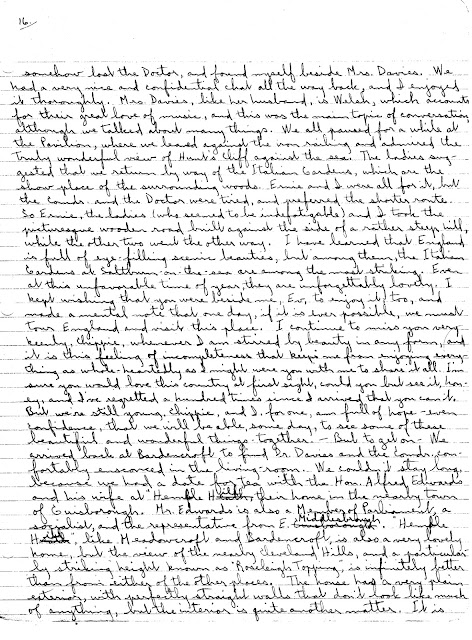 16.
somehow lost the Doctor, and found myself beside Mrs. Davies. We
had a very nice and confidential chat all the way back, and I enjoyed
it thoroughly. Mrs Davies, like her husband, is Welsh, which accounts
for their great love of music, and this was the main topic of conversation,
although we talked about many things. We all paused for a while at
the Pavilion, where we leaned against the iron railing and admired the
truly wonderful view of Hunt's Cliff against the sea. The ladies sug-
gested that we return by way of the Italian Gardens, which are the
show place of the surrounding woods. Ernie and I were all for it, but
the Cmdr. and the Doctor were tired, and preferred the shorter route.
So Ernie, the ladies (who seemed to be indefatigable) and I took the
picturesque wooden road built against the side of a rather steep hill,
while the other two went the other way. I have learned that England
is full of eye-filling scenic beauties, but among them, the Italian
Gardens at Saltburn-on-the-sea are among the most striking. Even
at this unfavorable time of year, they are unforgettably lovely. I
kept wishing that you were beside me, Ev, to enjoy it, too, and
made a mental note that one day, if it is ever possible, we must
tour England and visit this place. I continue to miss you very
keenly, Chippie, whenever I am stirred by beauty in any form, and
it is this feeling of incompleteness that keeps me from enjoying every-
thing as whole-heartedly as I might were you with me to share it all. I'm
sure you would love this country at first sight, could you but see it, hon-
ey, and I've regretted a hundred times since I arrived that you can't.
But we're still young, Chippie, and I, for one, am full of hope - even
confidence, that we will be able, some day, to see some of these
beautiful and wonderful things together - But to get on - We
arrived back at Bardencroft to find Dr. Davies and the Cmdr. com-
fortably ensconced in the living-room. We couldn't stay long,
because we had a date for tea with the Hon. Alfred Edwards
and his wife at "Hemble Hill", their home in the nearby town
of Guisborough. Mr. Edwards is also a Member of Parliament, a
socialist, and the representative from E. Middlesbrough. "Hemble
Hill", like Meadowcroft and Bardencroft, is also a very lovely
home, but the view of the nearby Cleveland Hills, and a particular-
ly striking height known as "Roseleigh Topping" is infinitely better
than from either of the other places. The house has a very plain
exterior, with perfectly straight walls that don't look like much
of anything, but the interior is quite another matter. It is